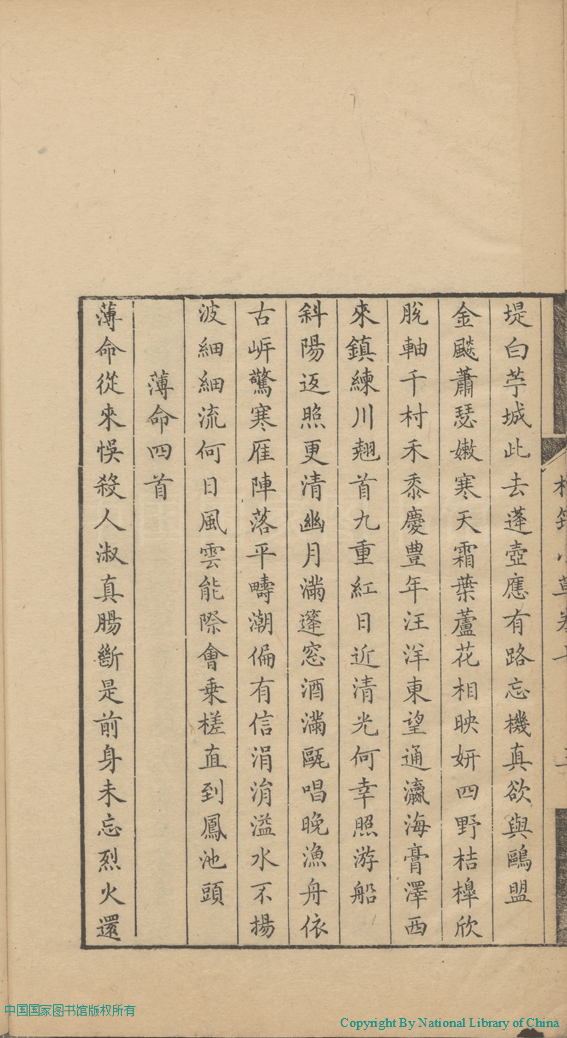 堤白苧城此去蓬壺應有路忘機真欲與鷗盟
金飈蕭瑟嫩寒天霜葉蘆花相映妍四野桔槹欣
脫軸千村禾黍慶豊年汪洋東望通瀛海膏澤西
來鎮練川翹首九重紅日近清光何幸照游船
斜陽返照更清幽月滿篷窓酒滿甌唱晚漁舟依
古岸驚寒雁陣落平疇潮偏有信涓涓溢水不揚
波細細流何日風雲能際會乗槎直到鳳池頭
薄命四首
薄命從來悞殺人淑真腸斷是前身未忘烈火還
中国国家图书馆版权所有
Copyright By National Library of China